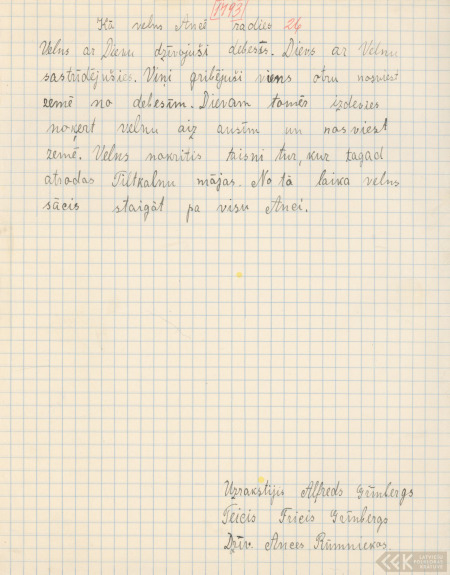 1793
Kā velns Ancē radies 26
Velns ar Dievu dzīvojuši debesīs. Dievs ar Velnu
sastrīdējušies. Viņi gribējuši viens otru nosviest
zemē no debesīm. Dievam tomēr izdevies
noķert velnu aiz ausīm un nosviest
zemē. Velns nokritis taisni tur, kur tagad
atrodas Tiltkalnu mājas. No tā laika velns
sācis staigāt pa visu Anci.
Uzrakstījis Alfreds Grīnbergs
Teicis Fricis Grīnbergs
Dzīv. Ances Rūmniekos.
LATVIEŠU
FOLKLORAS
KRĀTUVE